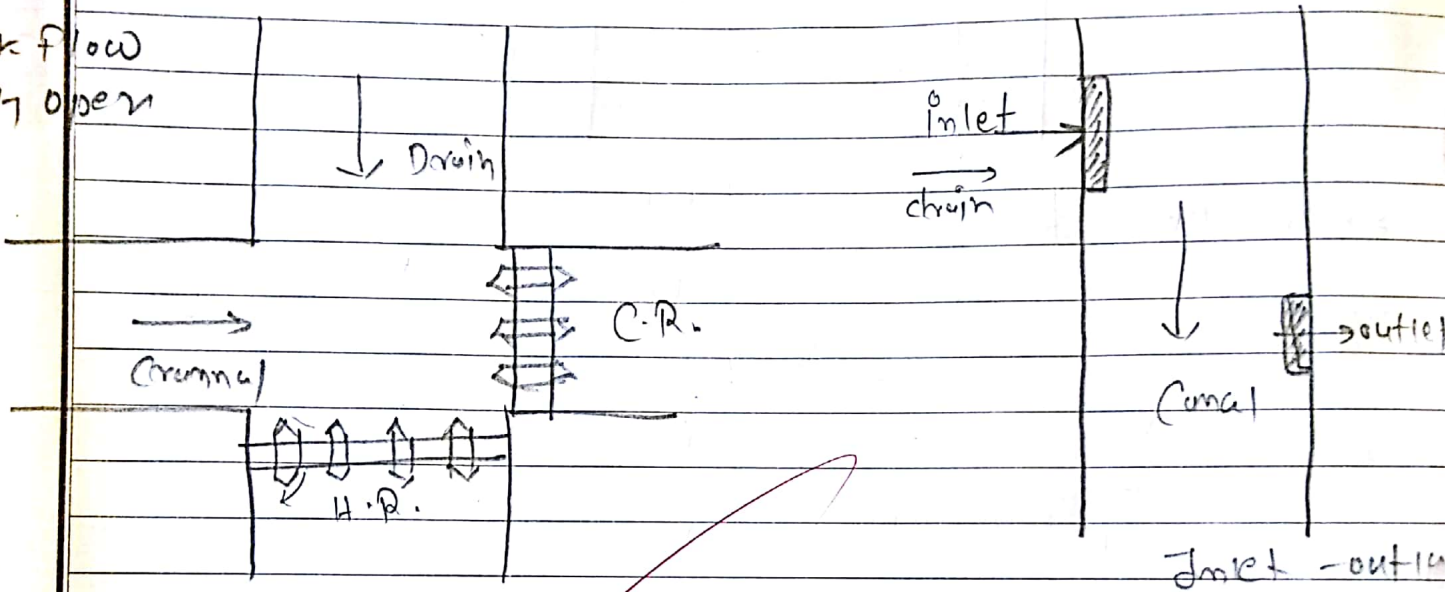 k flow
n open
Drain
inlet
drain
C.R.
Channal
→outlet
Canal
H.R.
Inlet - outle